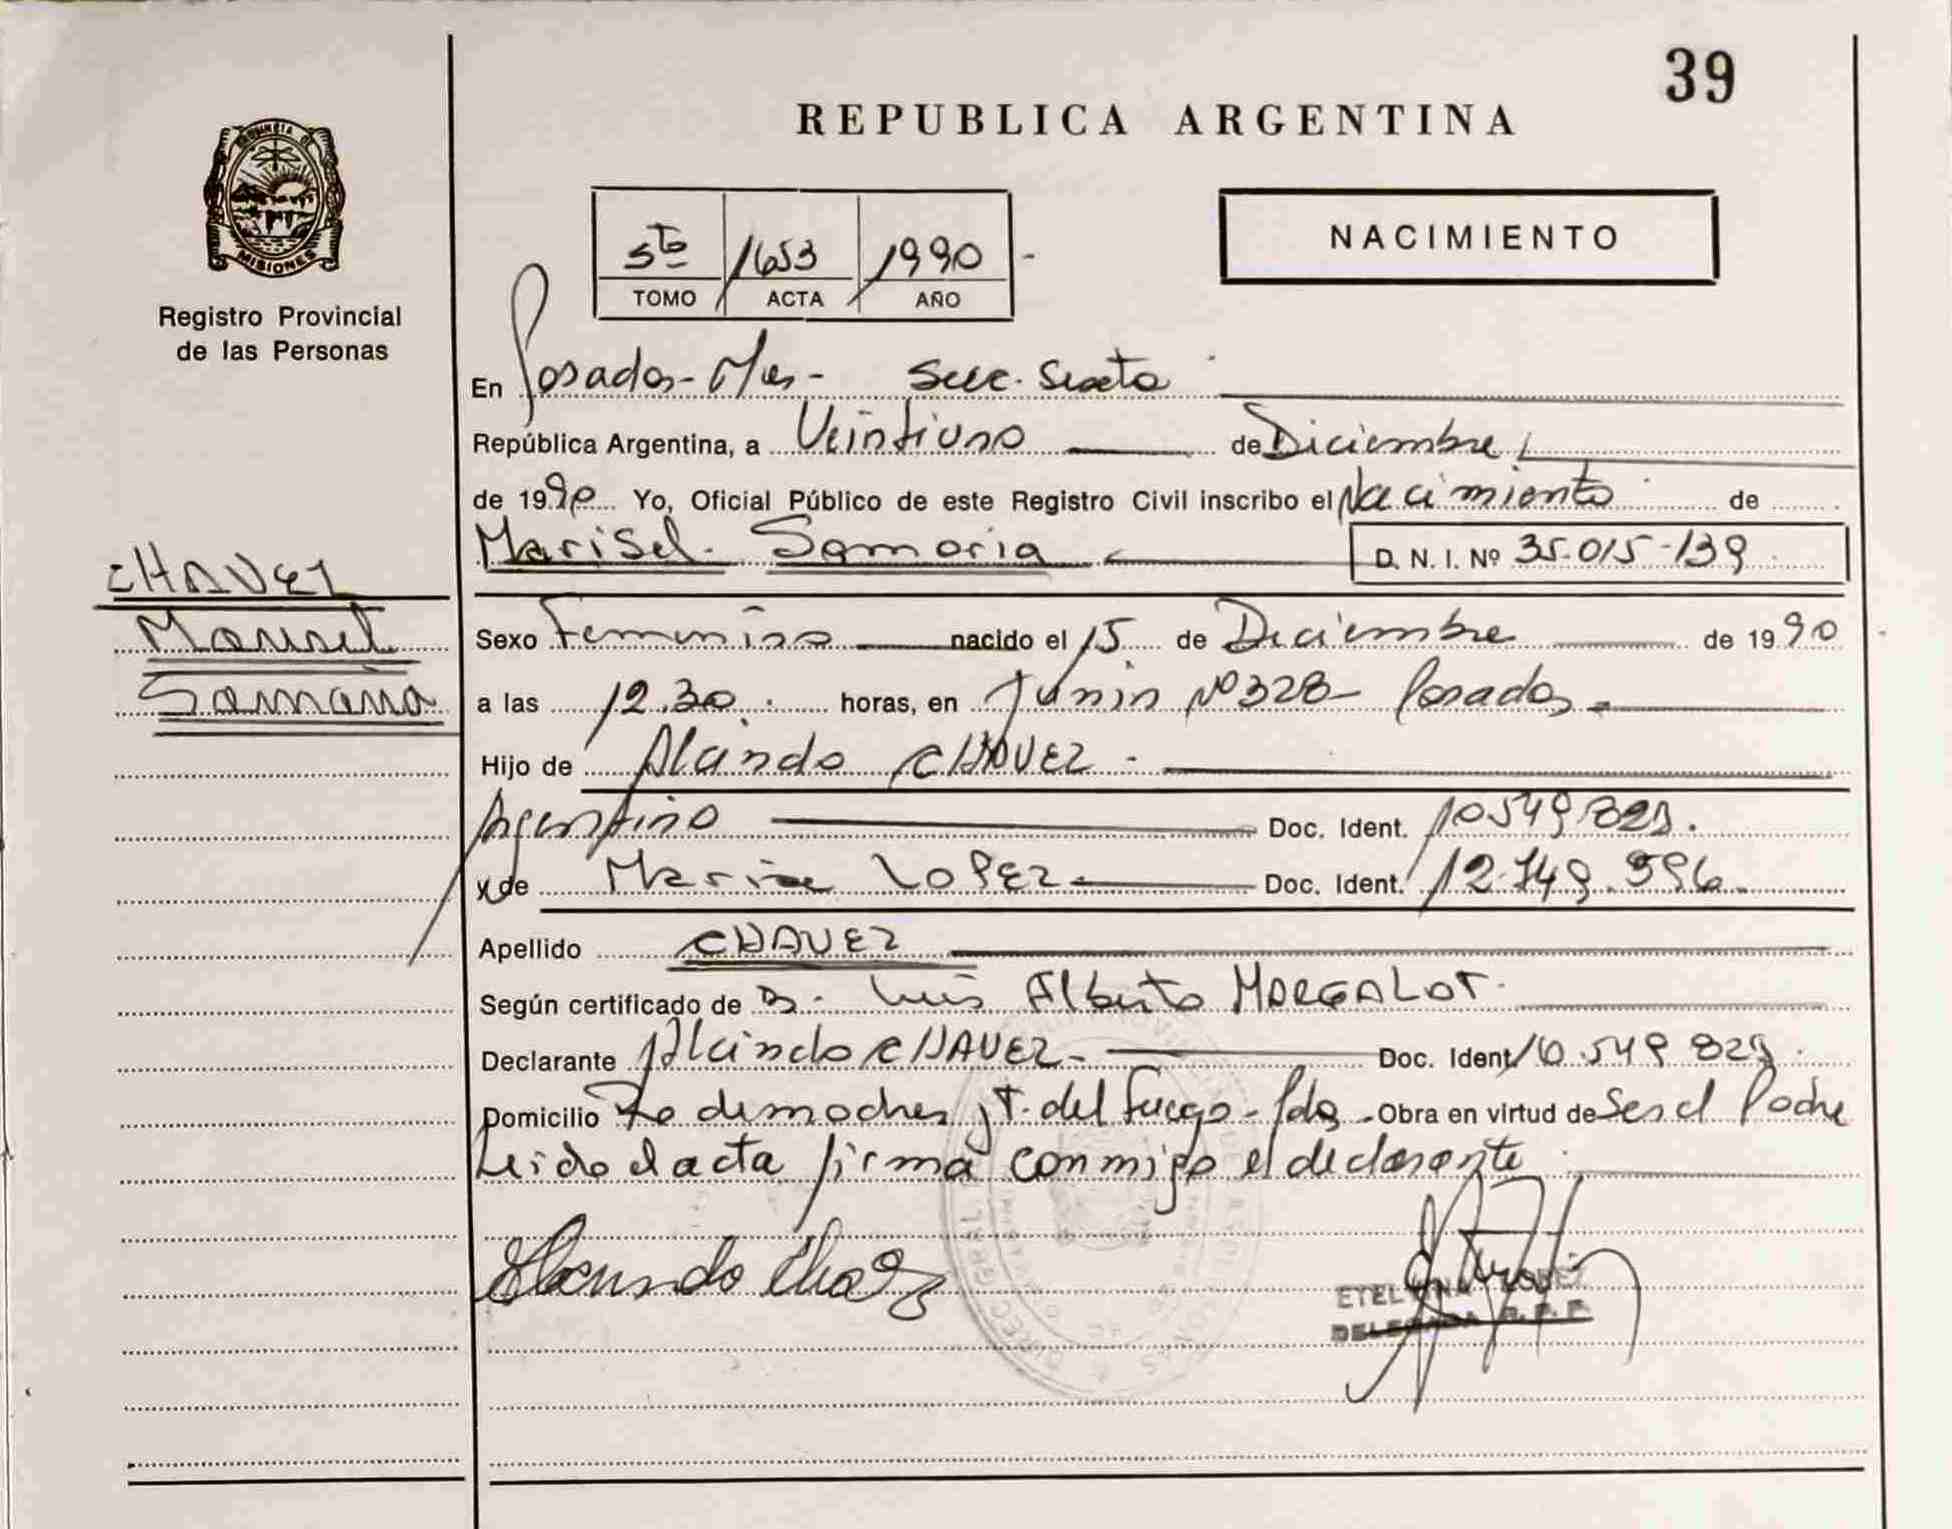 39
REPUBLICA ARGENTINA
PROVINCIA D MISIONES
Registro Provincial
de las Personas
5to 1653 1990
TOMO ACTA AÑO
NACIMIENTO
En Posadas - Mnes - Secc. Sexta
República Argentina, a Veintiuno de Diciembre
de 1990 Yo, Oficial Público de este Registro Civil inscribo el Nacimiento de
Marisel Samaria D. N. I. Nº 35.015.139
CHAVEZ
Marisel
Samaria
Sexo Femenino nacido el 15 de Diciembre de 1990
a las 12.30 horas, en Junin Nº 328 - Posadas
Hijo de Alcindo CHAVEZ -
Argentino Doc. Ident. 10.549.829.
y de Maria LOPEZ Doc. Ident. 12.749.596.
Apellido CHAVEZ
Según certificado de Dr. Luis Alberto MARGALOT.
Declarante Alcindo CHAVEZ - Doc. Ident 10.549.829
Domicilio demadres T. del Fuego - Pdas - Obra en virtud de Ser el Padre
Leido el acta firma conmigo el declarante
Alcindo Chavez
DELEGADA R.P.P.